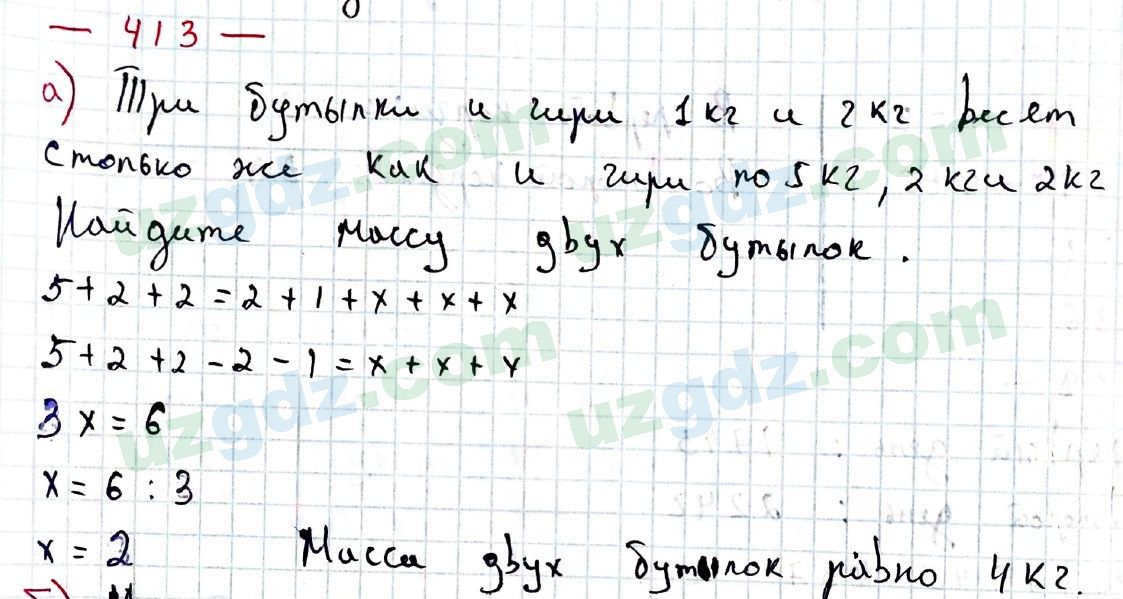 — 413 —
а) Три бутылки и гири 1 кг и 2 кг весят
столько же как и гири по 5 кг, 2 кг и 2 кг
Найдите массу двух бутылок.
5 + 2 + 2 = 2 + 1 + x + x + x
5 + 2 + 2 - 2 - 1 = x + x + x
3 x = 6
x = 6 : 3
x = 2 Масса двух бутылок равно 4 кг.
uzgdz.com
uzgdz.com
uzgdz.com
uzgdz.com